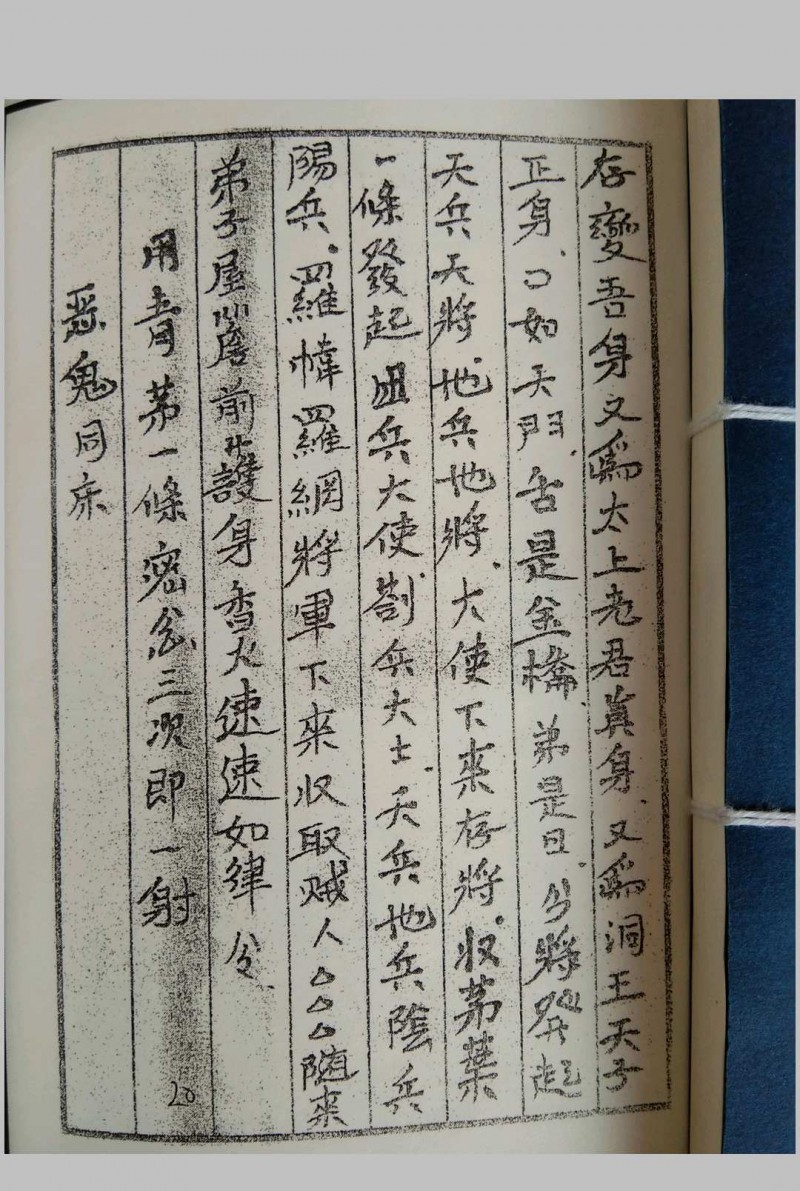 存變吾身又為太上老君真身又為洞王天子
正身口如天門舌是金橋弟是日分將發起
天兵天將地兵地將大使下來存將收茅葉
一條發起兵大使劄兵大士天兵地兵陰兵
陽兵羅幃羅網將軍下來收取賊人△△△隨來
弟子屋簷前護身香火速速如律令
用青茅一條密念三次即一射
惡鬼同床
20